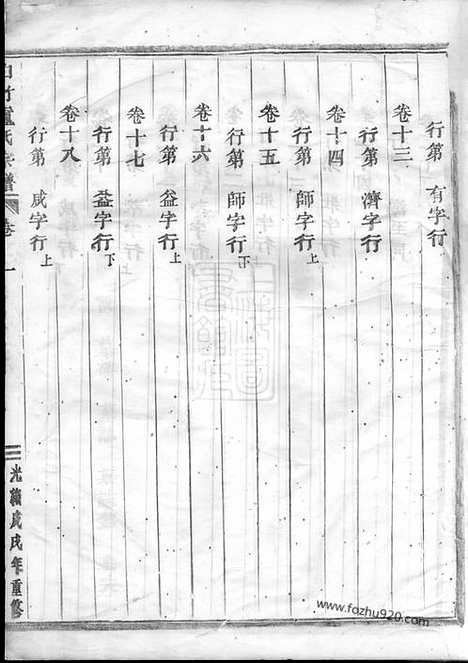 行第 有字行
卷十三
行第 濟字行
卷十四
行第 師字行上
卷十五
行第 師字行下
卷十六
行第 益字行上
卷十七
行第 益字行下
卷十八
行第 咸字行上
氏宗譜 卷一
光緒戊戌年重修
www.fozhu920.com